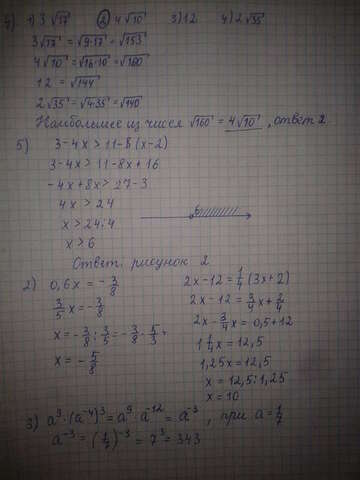 4) 1) 3√17 2) 4√10 3) 12 4) 2√35
3√17 = √9·17 = √153
4√10 = √16·10 = √160
12 = √144
2√35 = √4·35 = √140
Наибольшее из чисел √160 = 4√10, ответ 2
5) 3-4x > 11-8(x-2)
3-4x > 11-8x+16
-4x+8x > 27-3
4x > 24
x > 24:4
6
x > 6
Ответ. рисунок 2
2) 0,6x = -3/8
3/5 x = -3/8
x = -3/8 : 3/5 = -3/8 · 5/3
x = -5/8
2x-12 = 1/4 (3x+2)
2x-12 = 3/4 x + 2/4
2x - 3/4 x = 0,5+12
1 1/4 x = 12,5
1,25x = 12,5
x = 12,5:1,25
x = 10
3) a⁹·(a⁻⁴)³ = a⁹·a⁻¹² = a⁻³, при a = 1/7
a⁻³ = (1/7)⁻³ = 7³ = 343